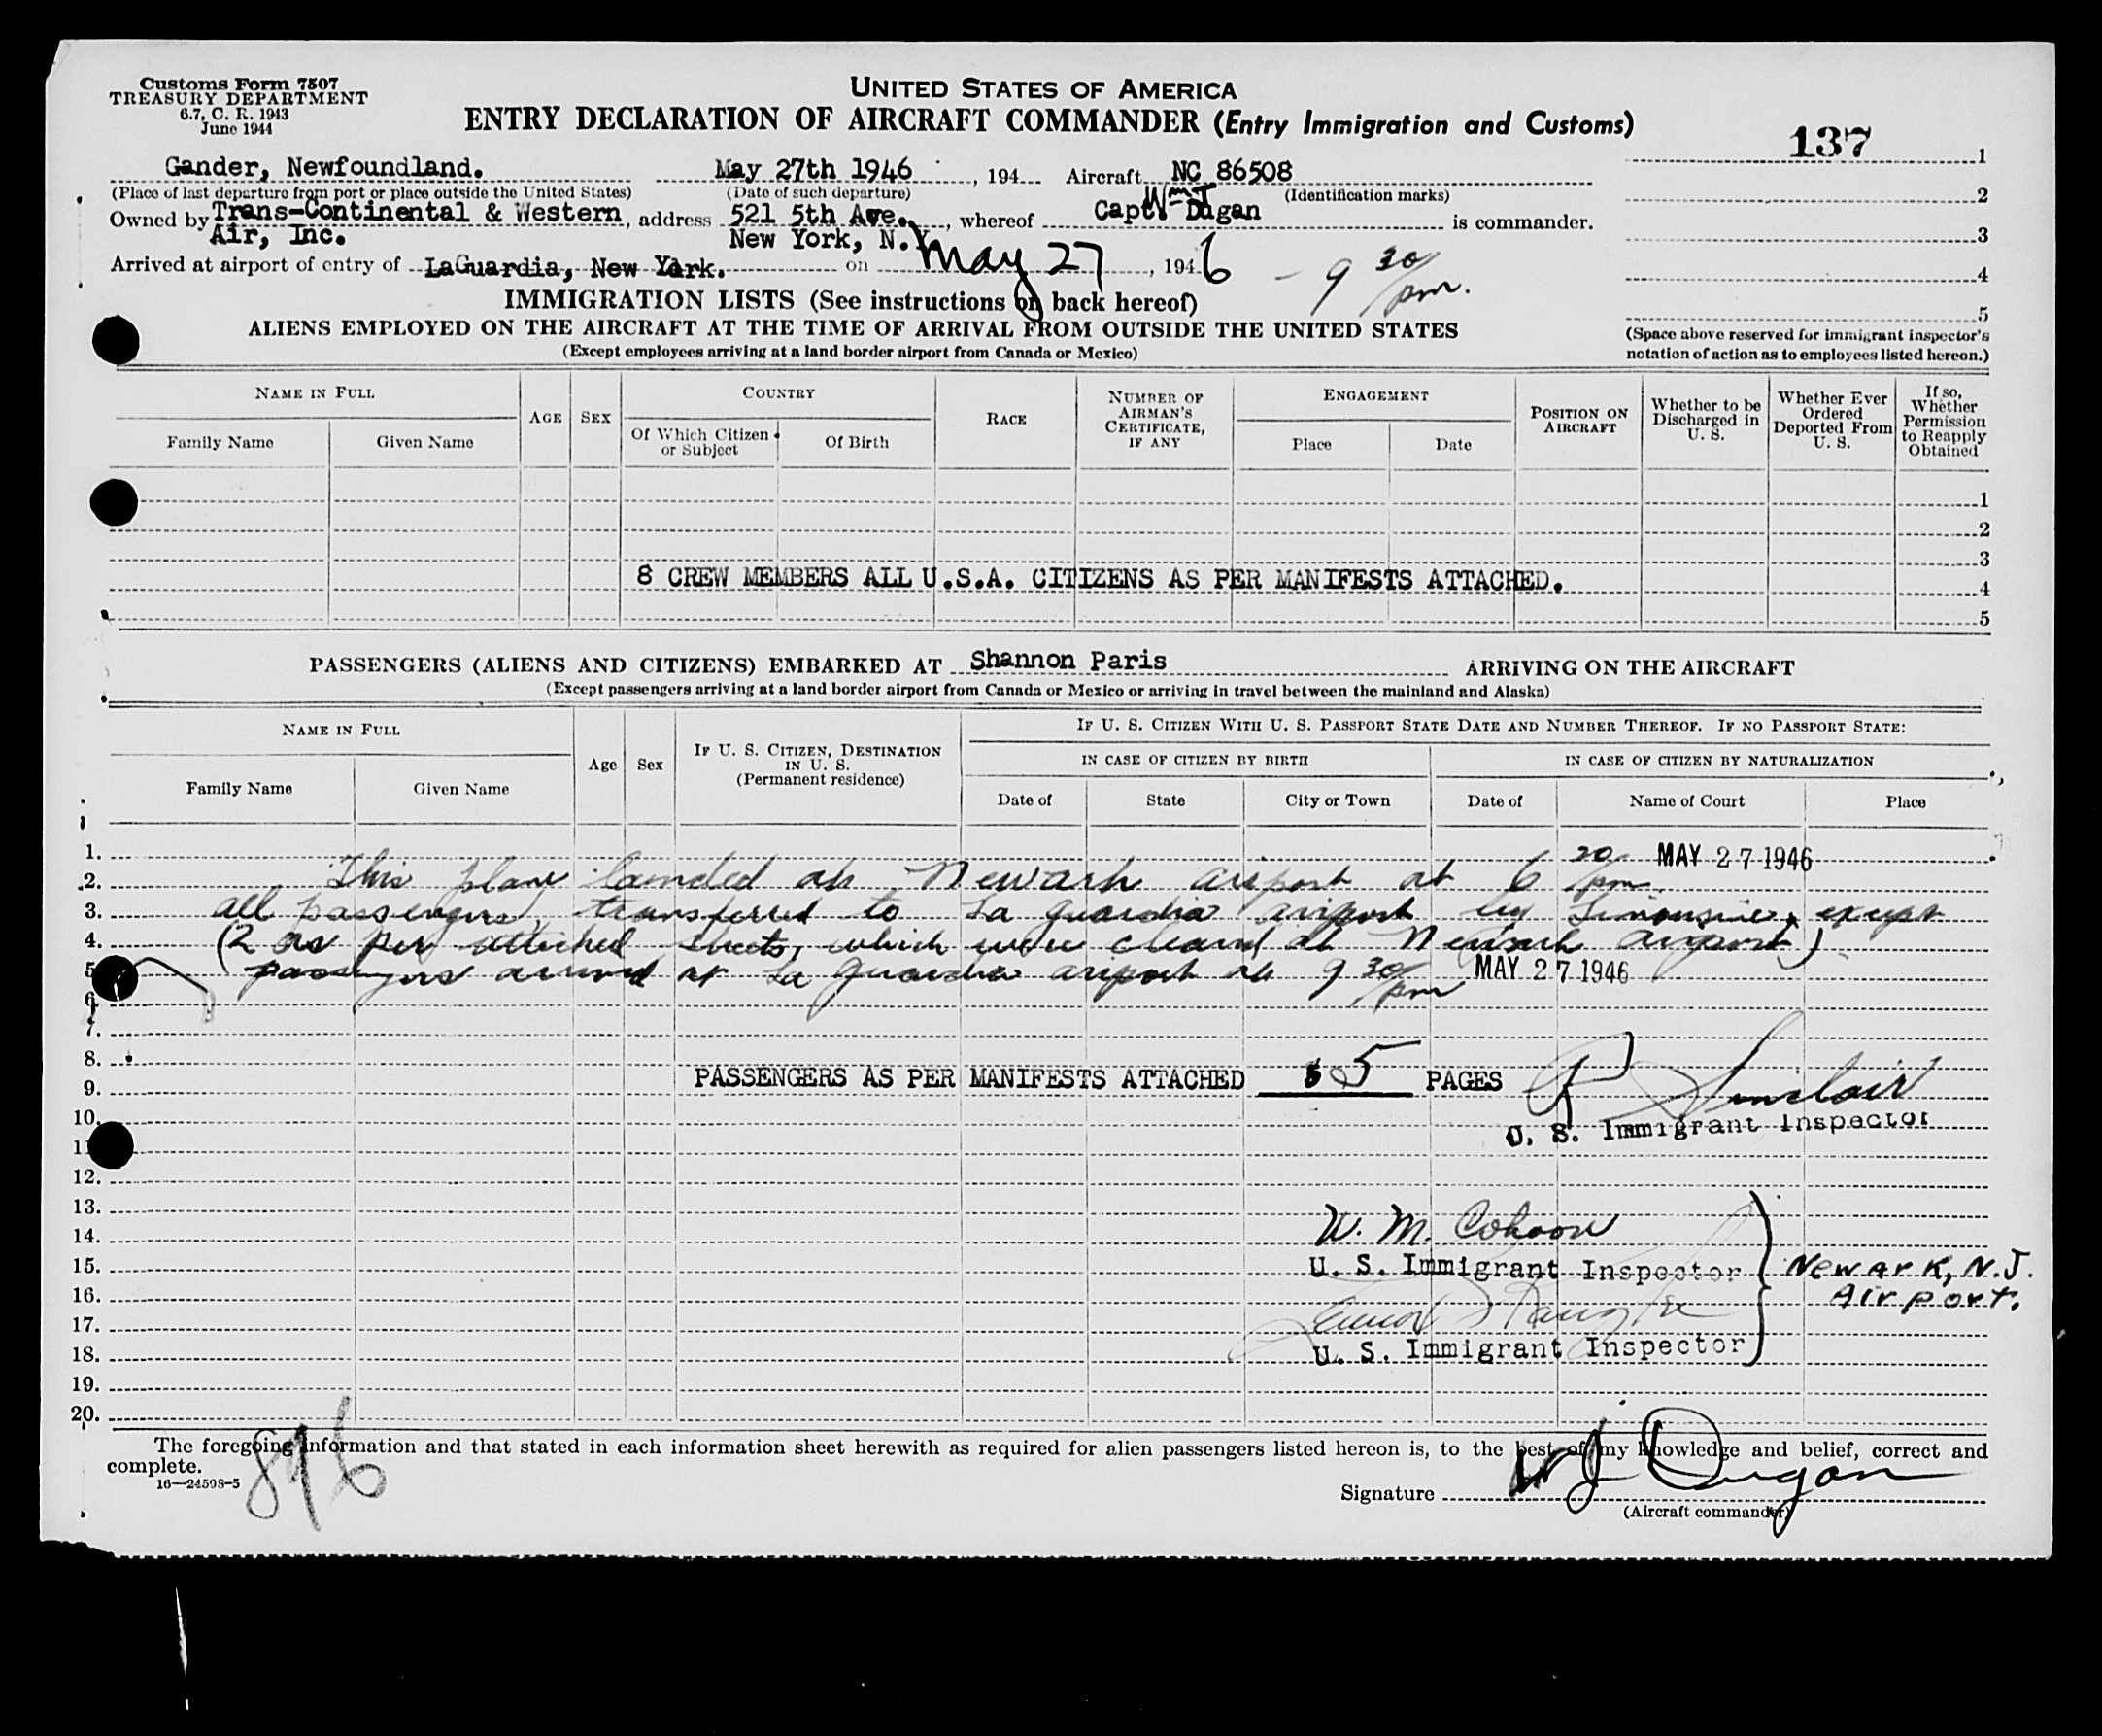 Customs Form 7507
TREASURY DEPARTMENT
6.7, C. R. 1943
June 1944
UNITED STATES OF AMERICA
ENTRY DECLARATION OF AIRCRAFT COMMANDER (Entry Immigration and Customs)
137 1
Gander, Newfoundland. May 27th 1946, 194 Aircraft NC 86508
(Place of last departure from port or place outside the United States) (Date of such departure) (Identification marks)
2
Wm J
Owned by Trans-Continental & Western, address 521 5th Ave., whereof Capt. Dugan is commander.
Air, Inc. New York, N.Y.
3
Arrived at airport of entry of LaGuardia, New York. on May 27, 1946 - 9 30/pm.
4
IMMIGRATION LISTS (See instructions on back hereof)
5
ALIENS EMPLOYED ON THE AIRCRAFT AT THE TIME OF ARRIVAL FROM OUTSIDE THE UNITED STATES
(Except employees arriving at a land border airport from Canada or Mexico)
(Space above reserved for immigrant inspector's
notation of action as to employees listed hereon.)
NAME IN FULL
Family Name Given Name
AGE SEX
COUNTRY
Of Which Citizen or Subject Of Birth
RACE
NUMBER OF AIRMAN'S CERTIFICATE, IF ANY
ENGAGEMENT
Place Date
POSITION ON AIRCRAFT
Whether to be Discharged in U. S.
Whether Ever Ordered Deported From U. S.
If so, Whether Permission to Reapply Obtained
1
2
3
8 CREW MEMBERS ALL U.S.A. CITIZENS AS PER MANIFESTS ATTACHED.
4
5
PASSENGERS (ALIENS AND CITIZENS) EMBARKED AT Shannon Paris ARRIVING ON THE AIRCRAFT
(Except passengers arriving at a land border airport from Canada or Mexico or arriving in travel between the mainland and Alaska)
NAME IN FULL
Family Name Given Name
Age Sex
IF U. S. CITIZEN, DESTINATION IN U. S.
(Permanent residence)
IF U. S. CITIZEN WITH U. S. PASSPORT STATE DATE AND NUMBER THEREOF. IF NO PASSPORT STATE:
IN CASE OF CITIZEN BY BIRTH IN CASE OF CITIZEN BY NATURALIZATION
Date of State City or Town Date of Name of Court Place
1.
2. This plane landed at Newark airport at 6 20/pm. MAY 27 1946
3. all passengers, transferred to La guardia airport by Limousine, except
4. (2 as per attached sheets, which were cleared at Newark airport)
5 passengers arrived at La guardia airport at 9 30/pm MAY 27 1946
6.
7.
8.
9. PASSENGERS AS PER MANIFESTS ATTACHED 5 PAGES Sinclair
10. U. S. Immigrant Inspector
11
12.
13.
14. W. M. Cohoon
15. U. S. Immigrant Inspector Newark, N.J.
16. Airport.
17.
18. U. S. Immigrant Inspector
19.
20.
The foregoing information and that stated in each information sheet herewith as required for alien passengers listed hereon is, to the best of my knowledge and belief, correct and
complete.
16—24598-5
896
Signature W J Dugan
(Aircraft commander)